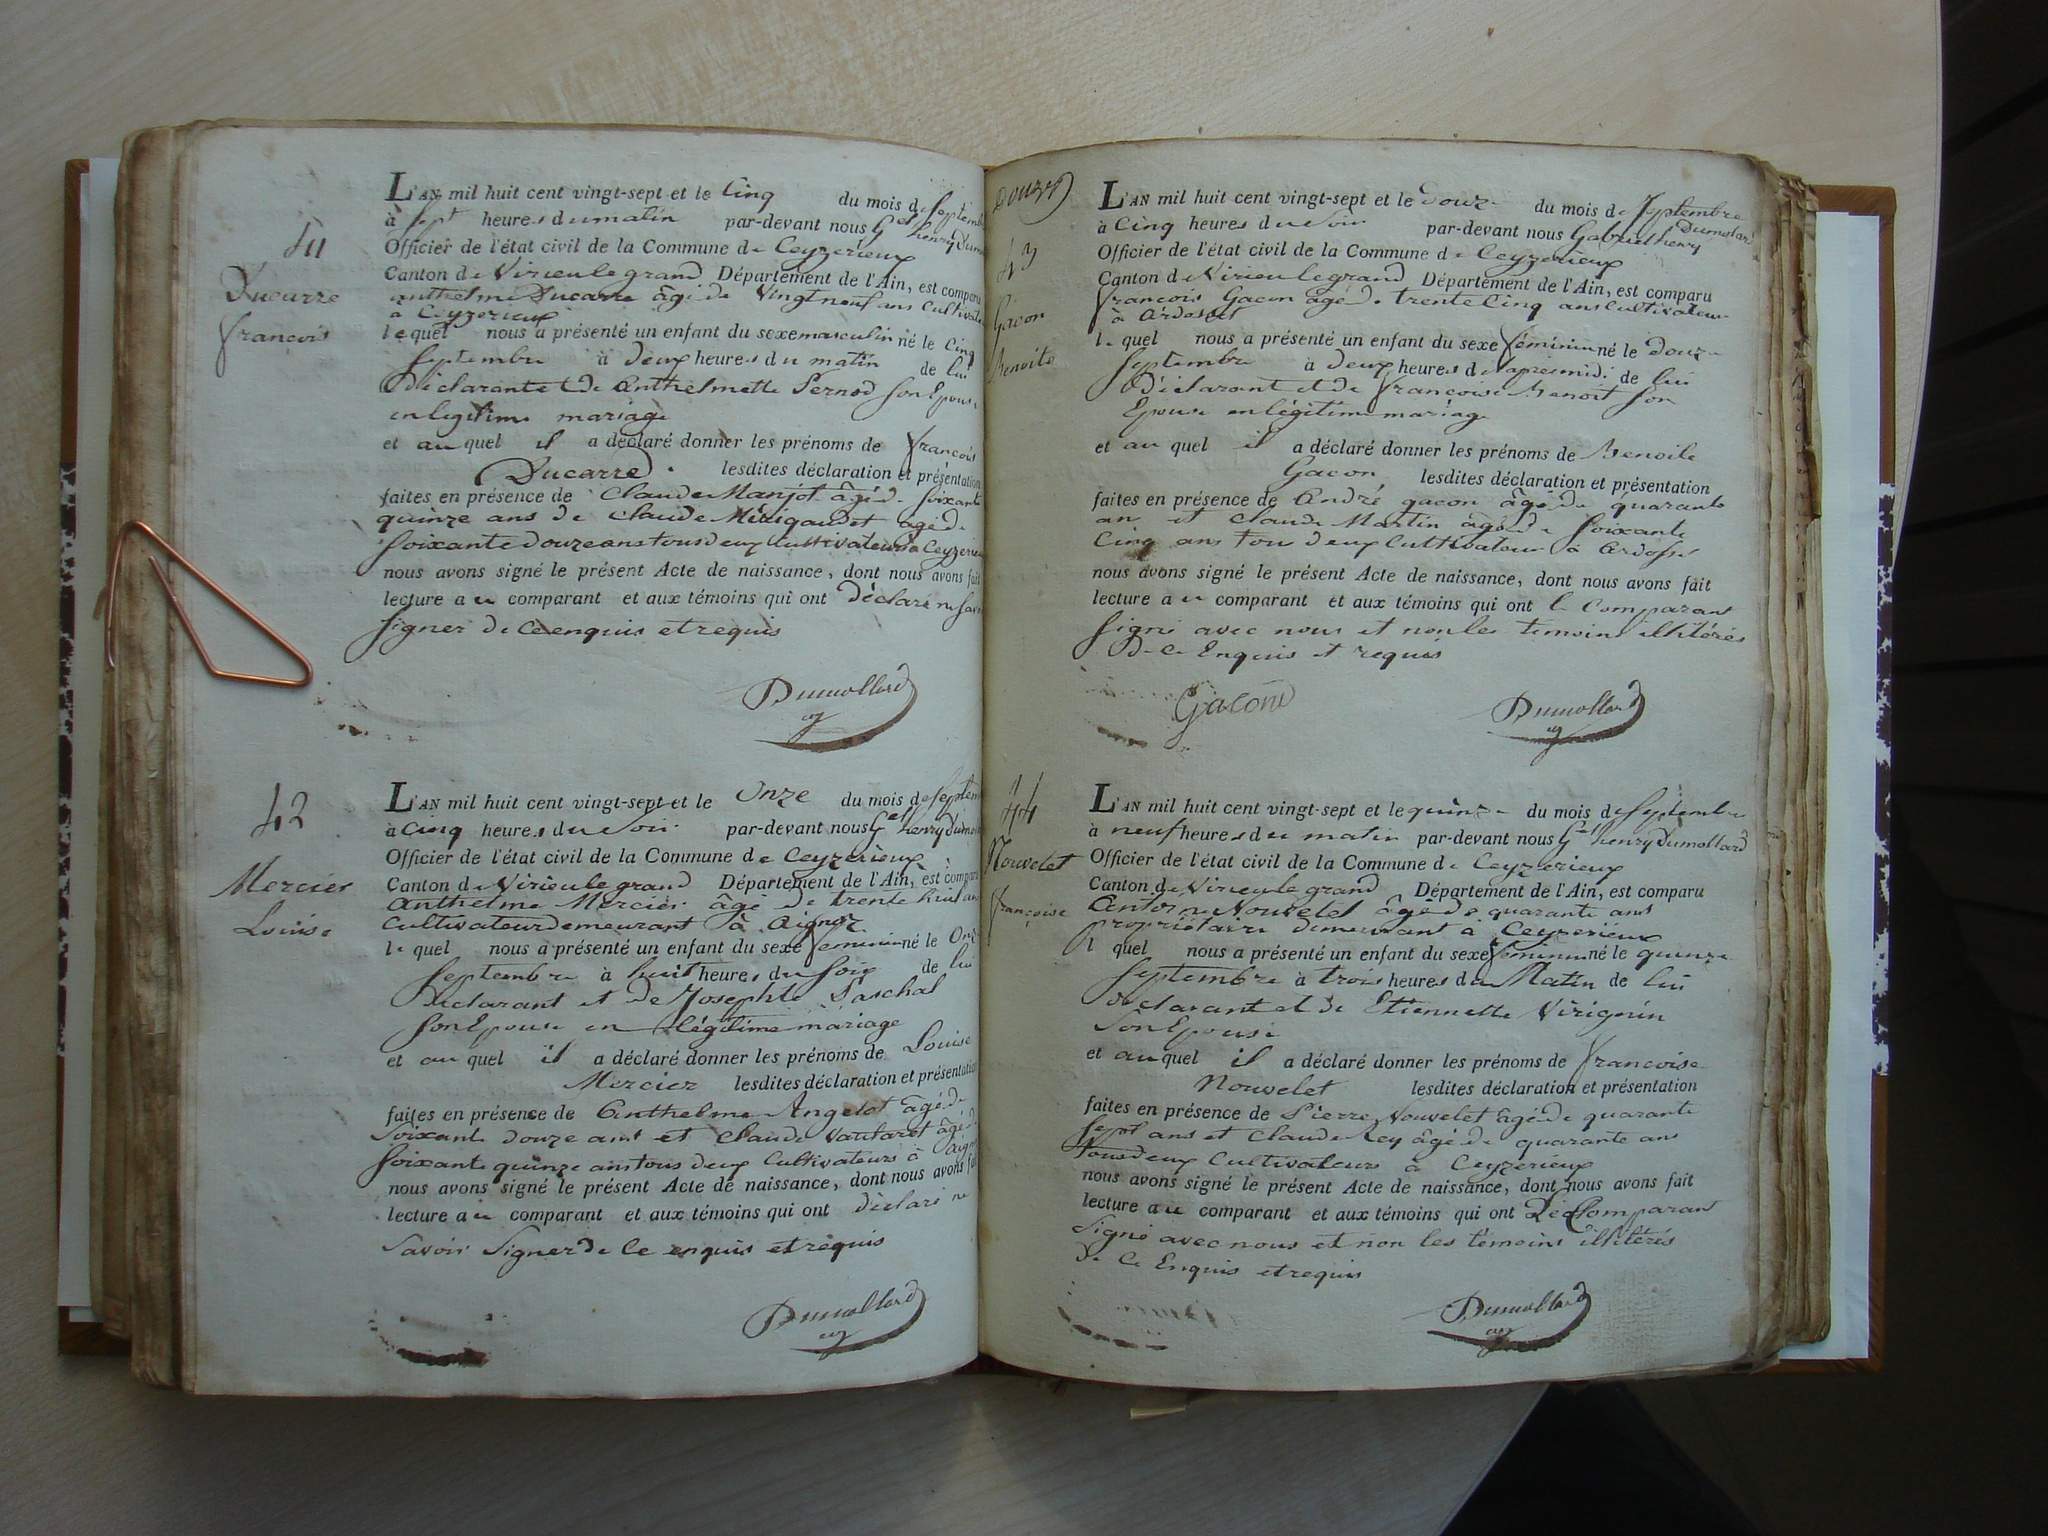 41
Ducarre
françois
L'AN mil huit cent vingt-sept et le Cinq du mois de Septembre
à sept heures du matin par-devant nous Gel henry Dumo
Officier de l'état civil de la Commune de Ceyzerieux
Canton de Virieu le grand Département de l'Ain, est comparu
anthelme Ducarre âgé de Vingt neuf ans Cultivate
a Ceyzerieux
lequel nous a présenté un enfant du sexe masculin né le Cinq
Septembre à deux heures du matin de lui
Déclarant et de Anthelmette Pernod Son Epouse
en legitime mariage
et au quel il a déclaré donner les prénoms de françois
Ducarre. lesdites déclaration et présentation
faites en présence de Claude Manjot âgé de Soixante
quinze ans de Claude Mérigaud et agé de
Soixante douze ans tous deux Cultivateurs a Ceyzerieu
nous avons signé le présent Acte de naissance, dont nous avons fait
lecture au comparant et aux témoins qui ont Déclaré ne Savoir
Signer de Ce enquis et requis
Dumollard
42
Mercier
Louise
L'AN mil huit cent vingt-sept et le Onze du mois de Septem
à Cinq heures du Soir par-devant nous Gel henry Dumo
Officier de l'état civil de la Commune de Ceyzerieux
Canton de Virieu le grand Département de l'Ain, est comparu
Anthelme Mercier âgé de trente huit ans
Cultivateur demeurant à Aignoz
le quel nous a présenté un enfant du sexe feminin né le Onze
Septembre à huit heures du Soir de lui
Déclarant et de Josephte Paschal
Son Epouse en légitime mariage
et au quel il a déclaré donner les prénoms de Louise
Mercier lesdites déclaration et présentation
faites en présence de Anthelme Angelot âgé de
Soixante douze ans et Claude Vautaret âgé de
Soixante quinze ans tous deux Cultivateurs à Aign
nous avons signé le présent Acte de naissance, dont nous avons fai
lecture au comparant et aux témoins qui ont déclaré ne
Savoir Signer de Ce enquis et requis
Dumollard
Douze
43
Gacon
Benoite
L'AN mil huit cent vingt-sept et le Douze du mois de Septembre
à Cinq heures du Soir par-devant nous Gabriel henry Dumollard
Officier de l'état civil de la Commune de Ceyzerieux
Canton de Virieu le grand Département de l'Ain, est comparu
françois Gacon âgé de trente Cinq ans Cultivateur
à Ardosset
le quel nous a présenté un enfant du sexe féminin né le Douze
Septembre à deux heures de l'apresmidi de lui
Déclarant et de françoise Benoit Son
Epouse en légitime mariage
et au quel il a déclaré donner les prénoms de Benoite
Gacon lesdites déclaration et présentation
faites en présence de André gacon âgé de quarante
an et Claude Martin âgé de Soixante
Cinq ans tou deux Cultivateur à Ardosset
nous avons signé le présent Acte de naissance, dont nous avons fait
lecture au comparant et aux témoins qui ont le Comparant
Signé avec nous et non les temoins illitérés
de Ce Enquis et requis
Gacon
Dumollard
44
Nouvelet
françoise
L'AN mil huit cent vingt-sept et le quinze du mois de Septembre
à neuf heures du matin par-devant nous Gel henry Dumollard
Officier de l'état civil de la Commune de Ceyzerieux
Canton de Virieu le grand Département de l'Ain, est comparu
Antoine Nouvelet âgé de quarante ans
propriétaire demeurant à Ceyzerieux
l quel nous a présenté un enfant du sexe féminin né le quinze
Septembre à trois heures du Matin de lui
Déclarant et de Etiennette Virignin
Son Epouse
et au quel il a déclaré donner les prénoms de françoise
Nouvelet lesdites déclaration et présentation
faites en présence de Pierre Nouvelet âgé de quarante
Sept ans et Claude Rey âgé de quarante ans
tous deux Cultivateurs à Ceyzerieux
nous avons signé le présent Acte de naissance, dont nous avons fait
lecture au comparant et aux témoins qui ont Comparant
Signé avec nous et non les témoins illitérés
de Ce Enquis et requis
Dumollard